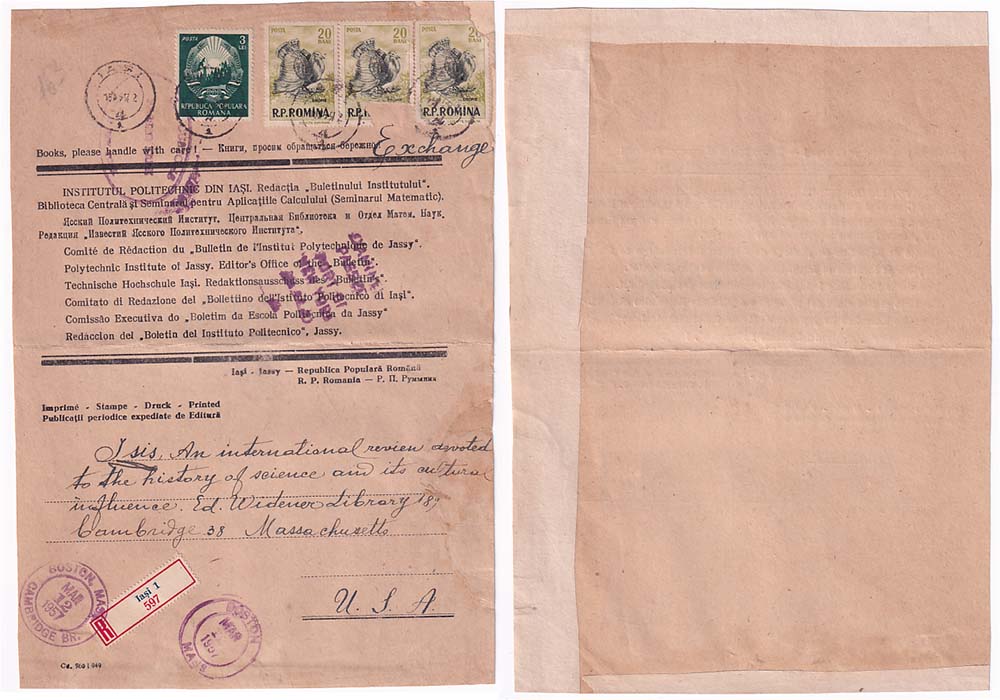 POSTA 3 LEI
REPUBLICA POPULARA
ROMANA
POSTA 20 BANI
DROPIE
R.P.ROMINA
POSTA 20 BANI
R.P.R
POSTA 20 BANI
DROPIE
R.P.ROMINA
IAȘI
Books, please handle with care! — Книги, просим обращаться бережно!
Exchange
INSTITUTUL POLITECHNIC DIN IAȘI. Redacția „Buletinului Institutului".
Biblioteca Centrală și Seminarul pentru Aplicațiile Calculului (Seminarul Matematic).
Ясский Политехнический Институт. Центральная Библиотека и Отдел Матем. Наук.
Редакция „Известий Ясского Политехнического Института".
Comité de Rédaction du „Bulletin de l'Institut Polytechnique de Jassy".
Polytechnic Institute of Jassy. Editor's Office of the „Bulletin".
Technische Hochschule Iași. Redaktionsausschuss des „Bulletins".
Comitato di Redazione del „Bollettino dell'Istituto Politecnico di Iași".
Comissão Executiva do „Boletim da Escola Politecnica da Jassy"
Redaccion del „Boletin del Instituto Politecnico", Jassy.
Iași - Jassy — Republica Populară Română
R. P. Romania — Р. П. Румыния
Imprimé - Stampe - Druck - Printed
Publicații periodice expediate de Editură
Isis. An international review devoted
to the history of science and its cultural
influence. Ed. Widener Library 189
Cambridge 38 Massachusetts
U. S. A.
BOSTON, MASS.
MAR
12
1957
CAMBRIDGE BR.
Iași 1
597
R
BOSTON
MAR
1957
MASS